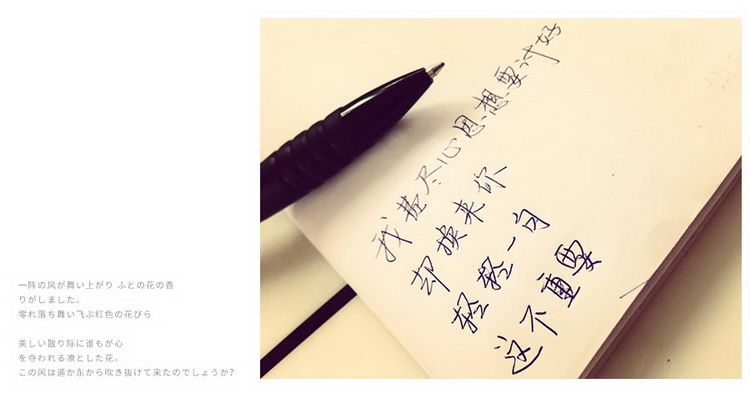 一阵の风が舞い上がり ふとの花の香
りがしました。
零れ落ち舞い飞ぶ红色の花びら
美しい散り际に谁もが心
を夺われる凛とした花。
この风は遥か东から吹き抜けて来たのでしょうか?
我费尽心思想要讨好
却换来你
轻轻一句
这不重要